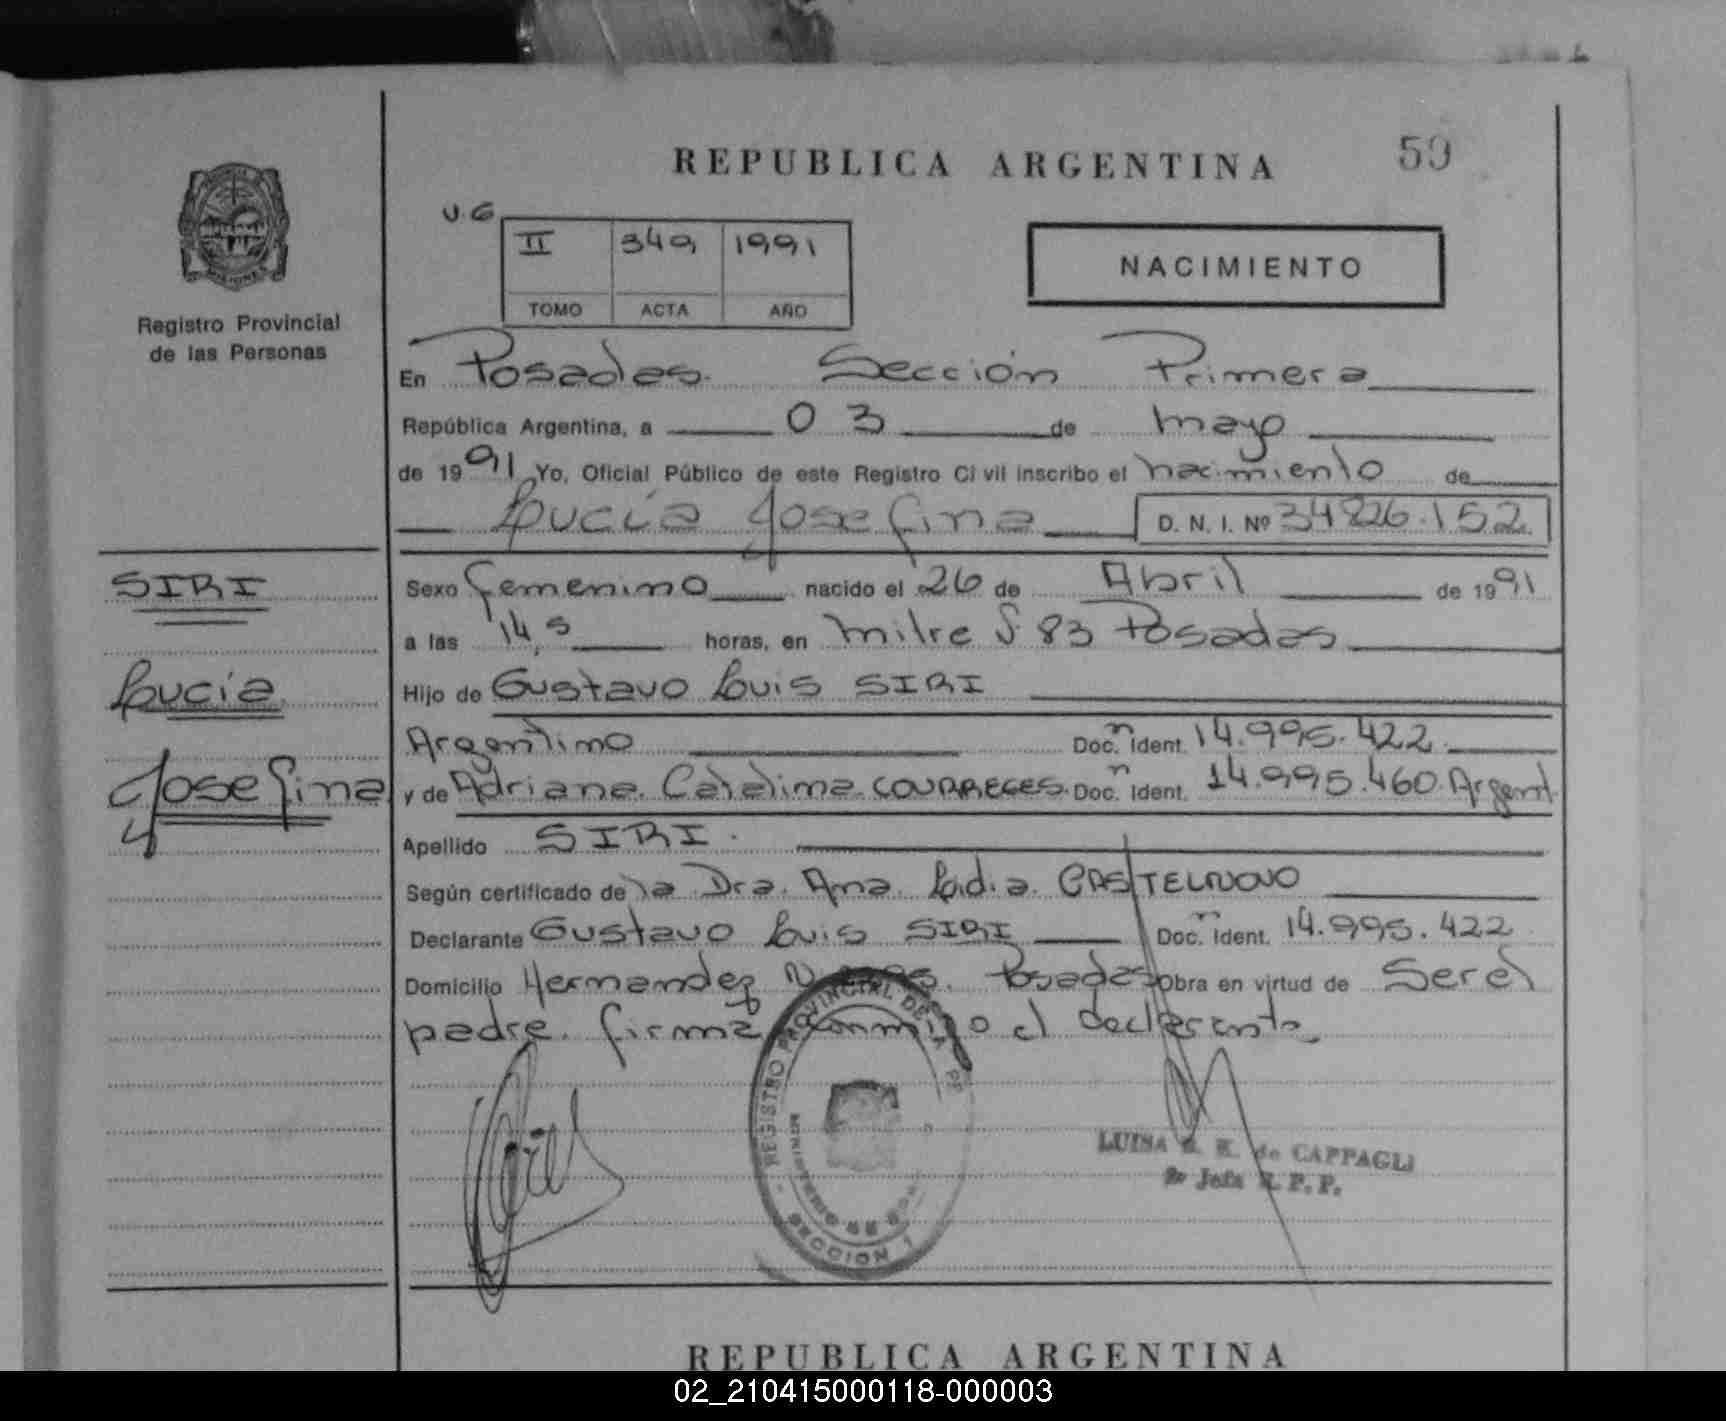 REPUBLICA ARGENTINA 59
U.G
II 349 1991
TOMO ACTA AÑO
NACIMIENTO
MISIONES
Registro Provincial
de las Personas
En Posadas. Sección Primera
República Argentina, a 03 de mayo
de 1991 Yo, Oficial Público de este Registro Civil inscribo el nacimiento de
Lucía Josefina D. N. I. Nº 34826.152
SIRI
Lucía
Josefina
Sexo femenino nacido el 26 de Abril de 1991
a las 14,5 horas, en mitre 83 Posadas
Hijo de Gustavo Luis SIRI
Argentino Doc. n Ident. 14.995.422
y de Adriana Catalina COURREGES Doc. n Ident. 14.995.460 Argent.
Apellido SIRI.
Según certificado de la Dra. Ana Lidia CASTELNOVO
Declarante Gustavo Luis SIRI Doc. n Ident. 14.995.422
Domicilio Hernandez Posadas Obra en virtud de Ser el
padre. firma conmigo el declarante
REGISTRO PROVINCIAL DE LA
MINISTERIO DE
SECCION 1
LUISA K. de CAPPAGLI
Jefa R.P.P.
REPUBLICA ARGENTINA
02_210415000118-000003